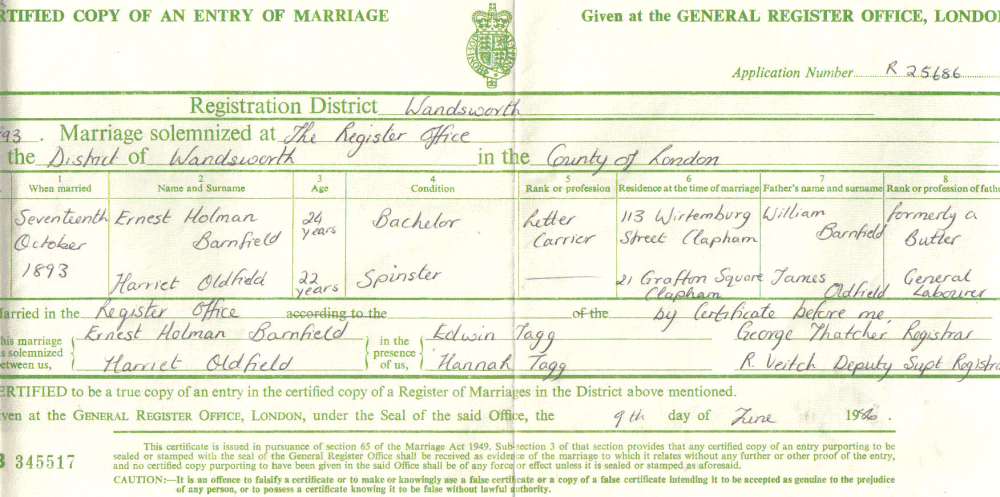 RTIFIED COPY OF AN ENTRY OF MARRIAGE Given at the GENERAL REGISTER OFFICE, LONDO
Application Number R 25686
Registration District Wandsworth
93. Marriage solemnized at The Register Office
the District of Wandsworth in the County of London
1 2 3 4 5 6 7 8
When married Name and Surname Age Condition Rank or profession Residence at the time of marriage Father's name and surname Rank or profession of fathe
Seventeenth Ernest Holman 24 Bachelor Letter 113 Wirtemburg William formerly a
October Barnfield years Carrier Street Clapham Barnfield Butler
1893 Harriet Oldfield 22 Spinster 21 Grafton Square James General
years Clapham Oldfield Labourer
arried in the Register Office according to the of the by Certificate before me,
his marriage Ernest Holman Barnfield in the Edwin Tagg George Thatcher Registrar
s solemnized presence
etween us, Harriet Oldfield of us, Hannah Tagg R. Veitch Deputy Supt Registra
ERTIFIED to be a true copy of an entry in the certified copy of a Register of Marriages in the District above mentioned.
ven at the GENERAL REGISTER OFFICE, LONDON, under the Seal of the said Office, the 9th day of June 19
This certificate is issued in pursuance of section 65 of the Marriage Act 1949. Sub-section 3 of that section provides that any certified copy of an entry purporting to be
sealed or stamped with the seal of the General Register Office shall be received as evidence of the marriage to which it relates without any further or other proof of the entry,
and no certified copy purporting to have been given in the said Office shall be of any force or effect unless it is sealed or stamped as aforesaid.
B 345517
CAUTION:—It is an offence to falsify a certificate or to make or knowingly use a false certificate or a copy of a false certificate intending it to be accepted as genuine to the prejudice
of any person, or to possess a certificate knowing it to be false without lawful authority.